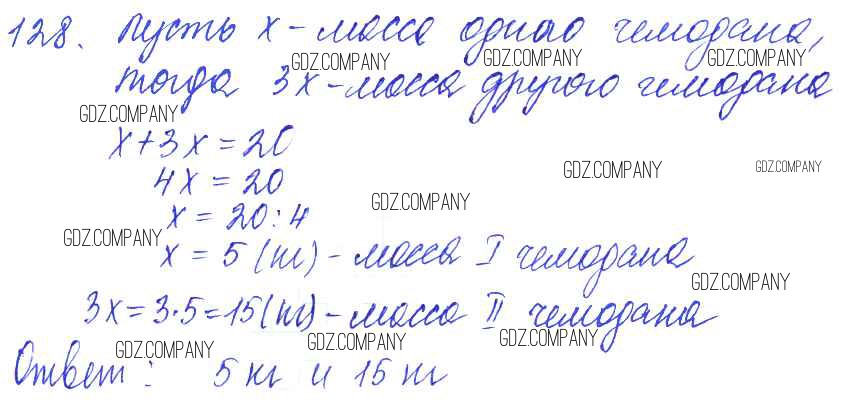 128. Пусть x - масса одного чемодана,
GDZ.COMPANY GDZ.COMPANY GDZ.COMPANY
тогда 3x - масса другого чемодана
GDZ.COMPANY
x + 3x = 20
GDZ.COMPANY GDZ.COMPANY
4x = 20
GDZ.COMPANY
x = 20 : 4
GDZ.COMPANY
x = 5 (кг) - масса I чемодана
GDZ.COMPANY
3x = 3·5 = 15 (кг) - масса II чемодана
GDZ.COMPANY GDZ.COMPANY GDZ.COMPANY
Ответ: 5 кг и 15 кг